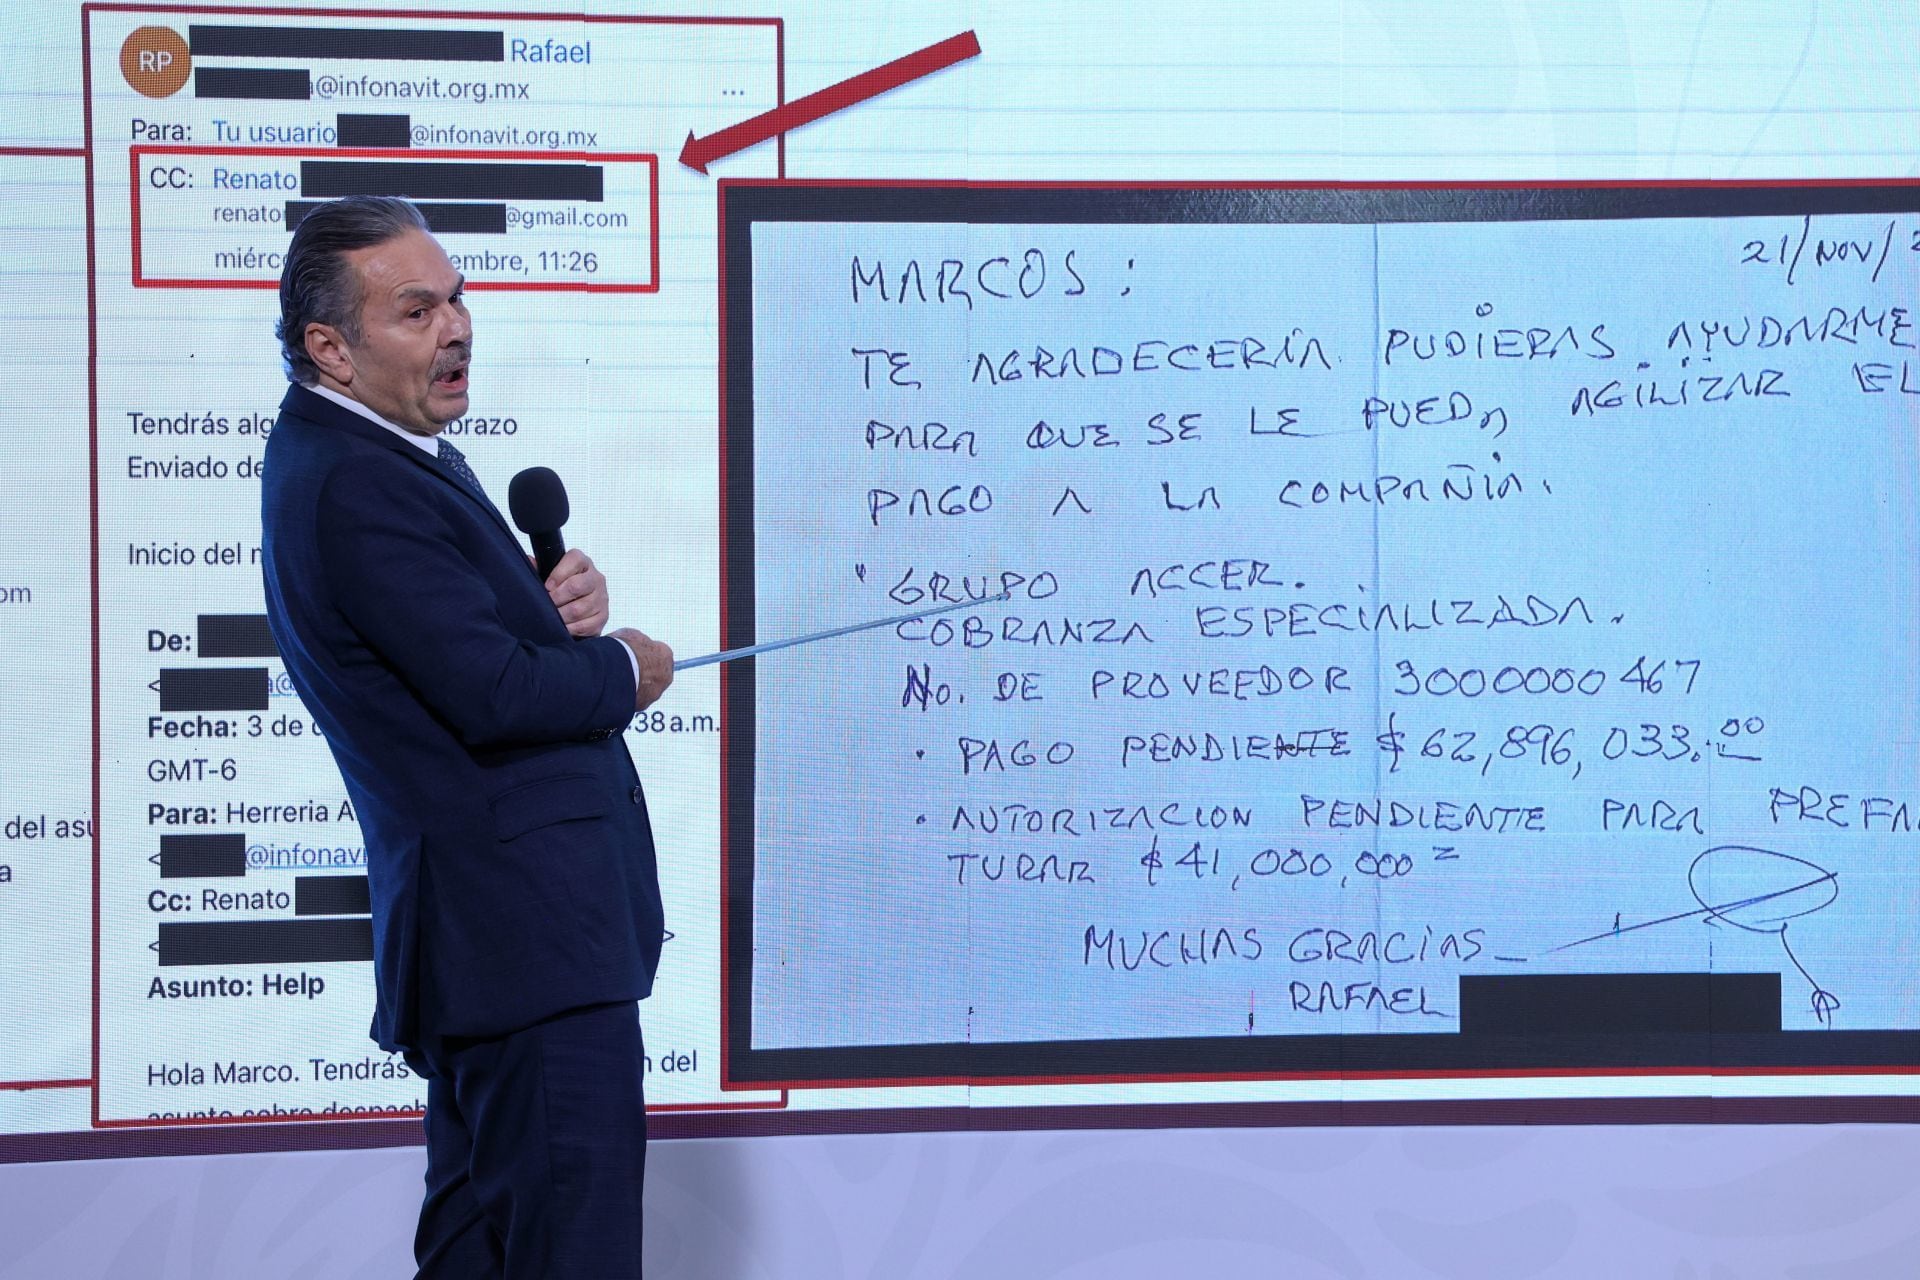 RP
Rafael
@infonavit.org.mx
...
Para: Tu usuario @infonavit.org.mx
CC: Renato
renato @gmail.com
embre, 11:26
Tendrás
Enviado
Inicio del
De:
Fecha: 3 de :38 a.m.
GMT-6
Para: Herreria A
@infonavi
Cc: Renato
< >
Asunto: Help
Hola Marco. Tendrás del
asunto sobre
del
a
21/NOV/
MARCOS:
TE AGRADECERÍA PUDIERAS AYUDARME
PARA QUE SE LE PUEDA AGILIZAR EL
PAGO A LA COMPAÑIA.
" GRUPO ACCER.
COBRANZA ESPECIALIZADA.
No. DE PROVEEDOR 3000000467
· PAGO PENDIENTE $62,896,033.00
· AUTORIZACION PENDIENTE PARA PREFA
TURAR $41,000,000=
MUCHAS GRACIAS
RAFAEL